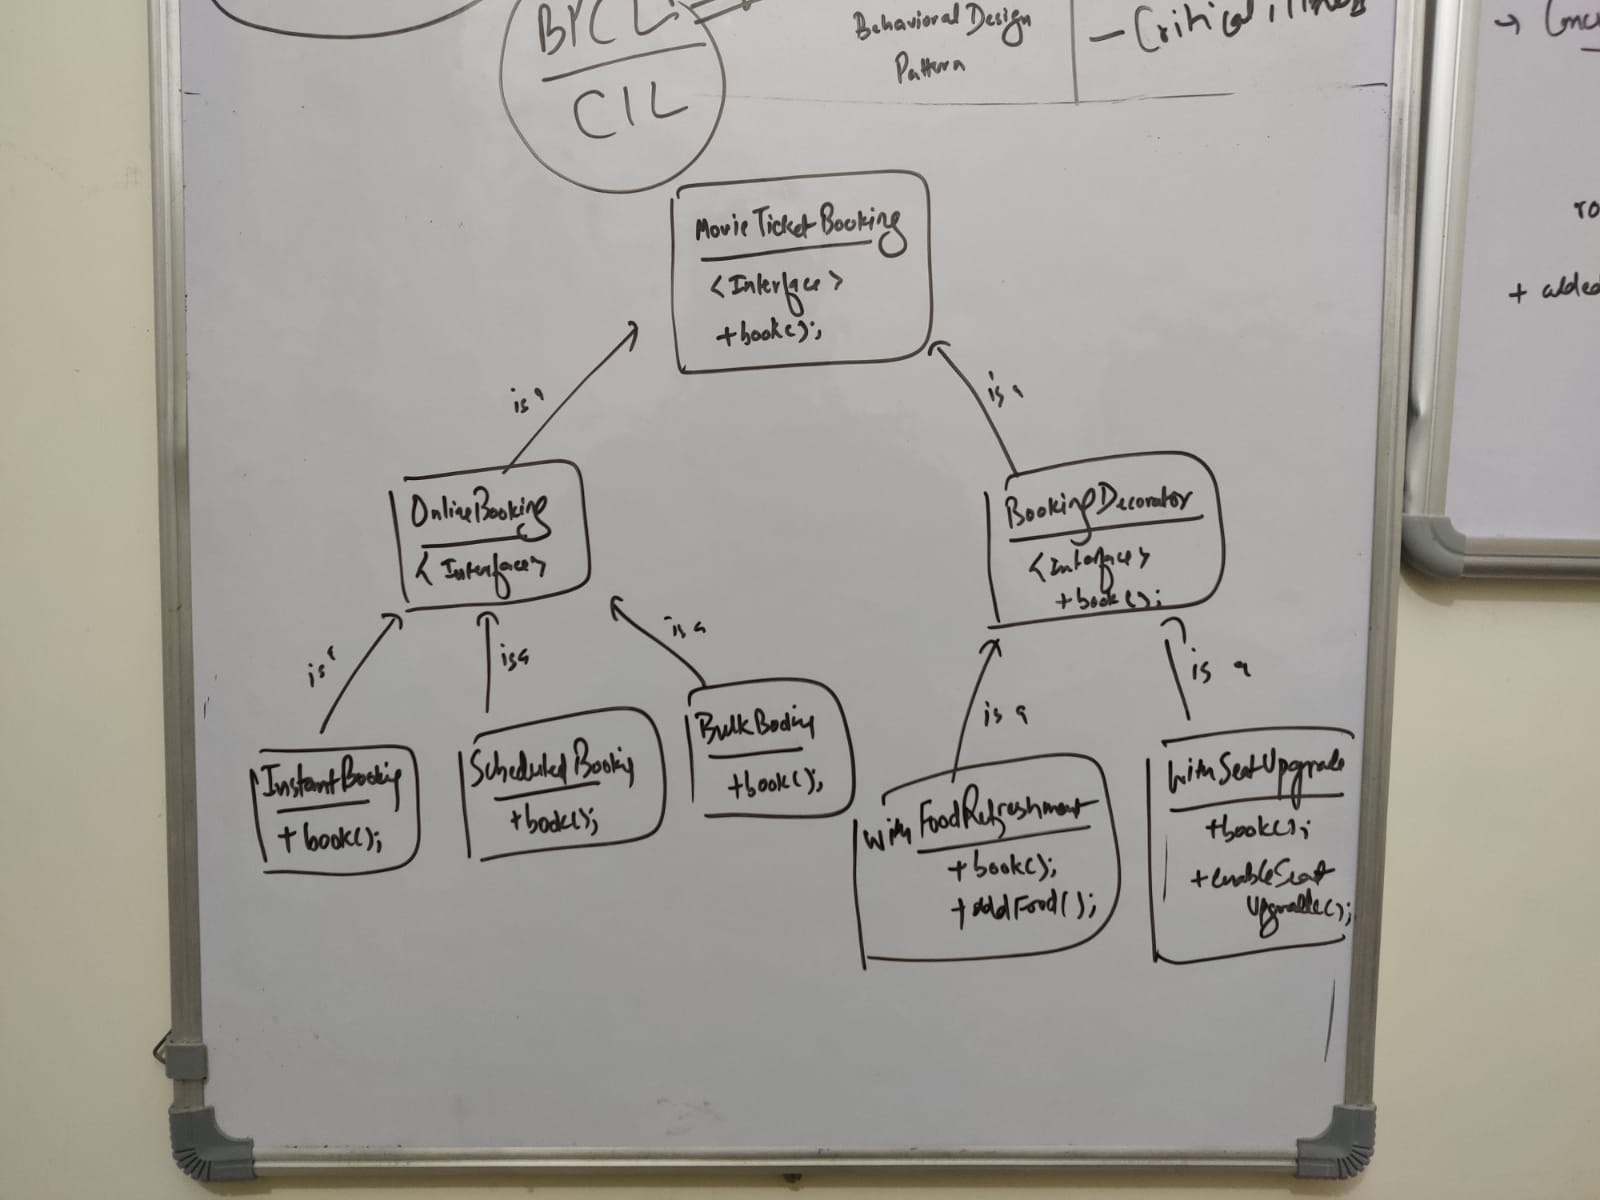 CIL
Behavioral Design
Pattern
- Critical
+ added
MovieTicketBooking
<Interface>
+book();
is a
is a
OnlineBooking
<Interface>
BookingDecorator
<Interface>
+book();
is a
is a
is a
is a
is a
InstantBooking
+ book();
ScheduledBooking
+book();
BulkBooking
+book();
With FoodRefreshment
+book();
+addFood();
WithSeatUpgrade
+book();
+enableSeat
Upgrade();